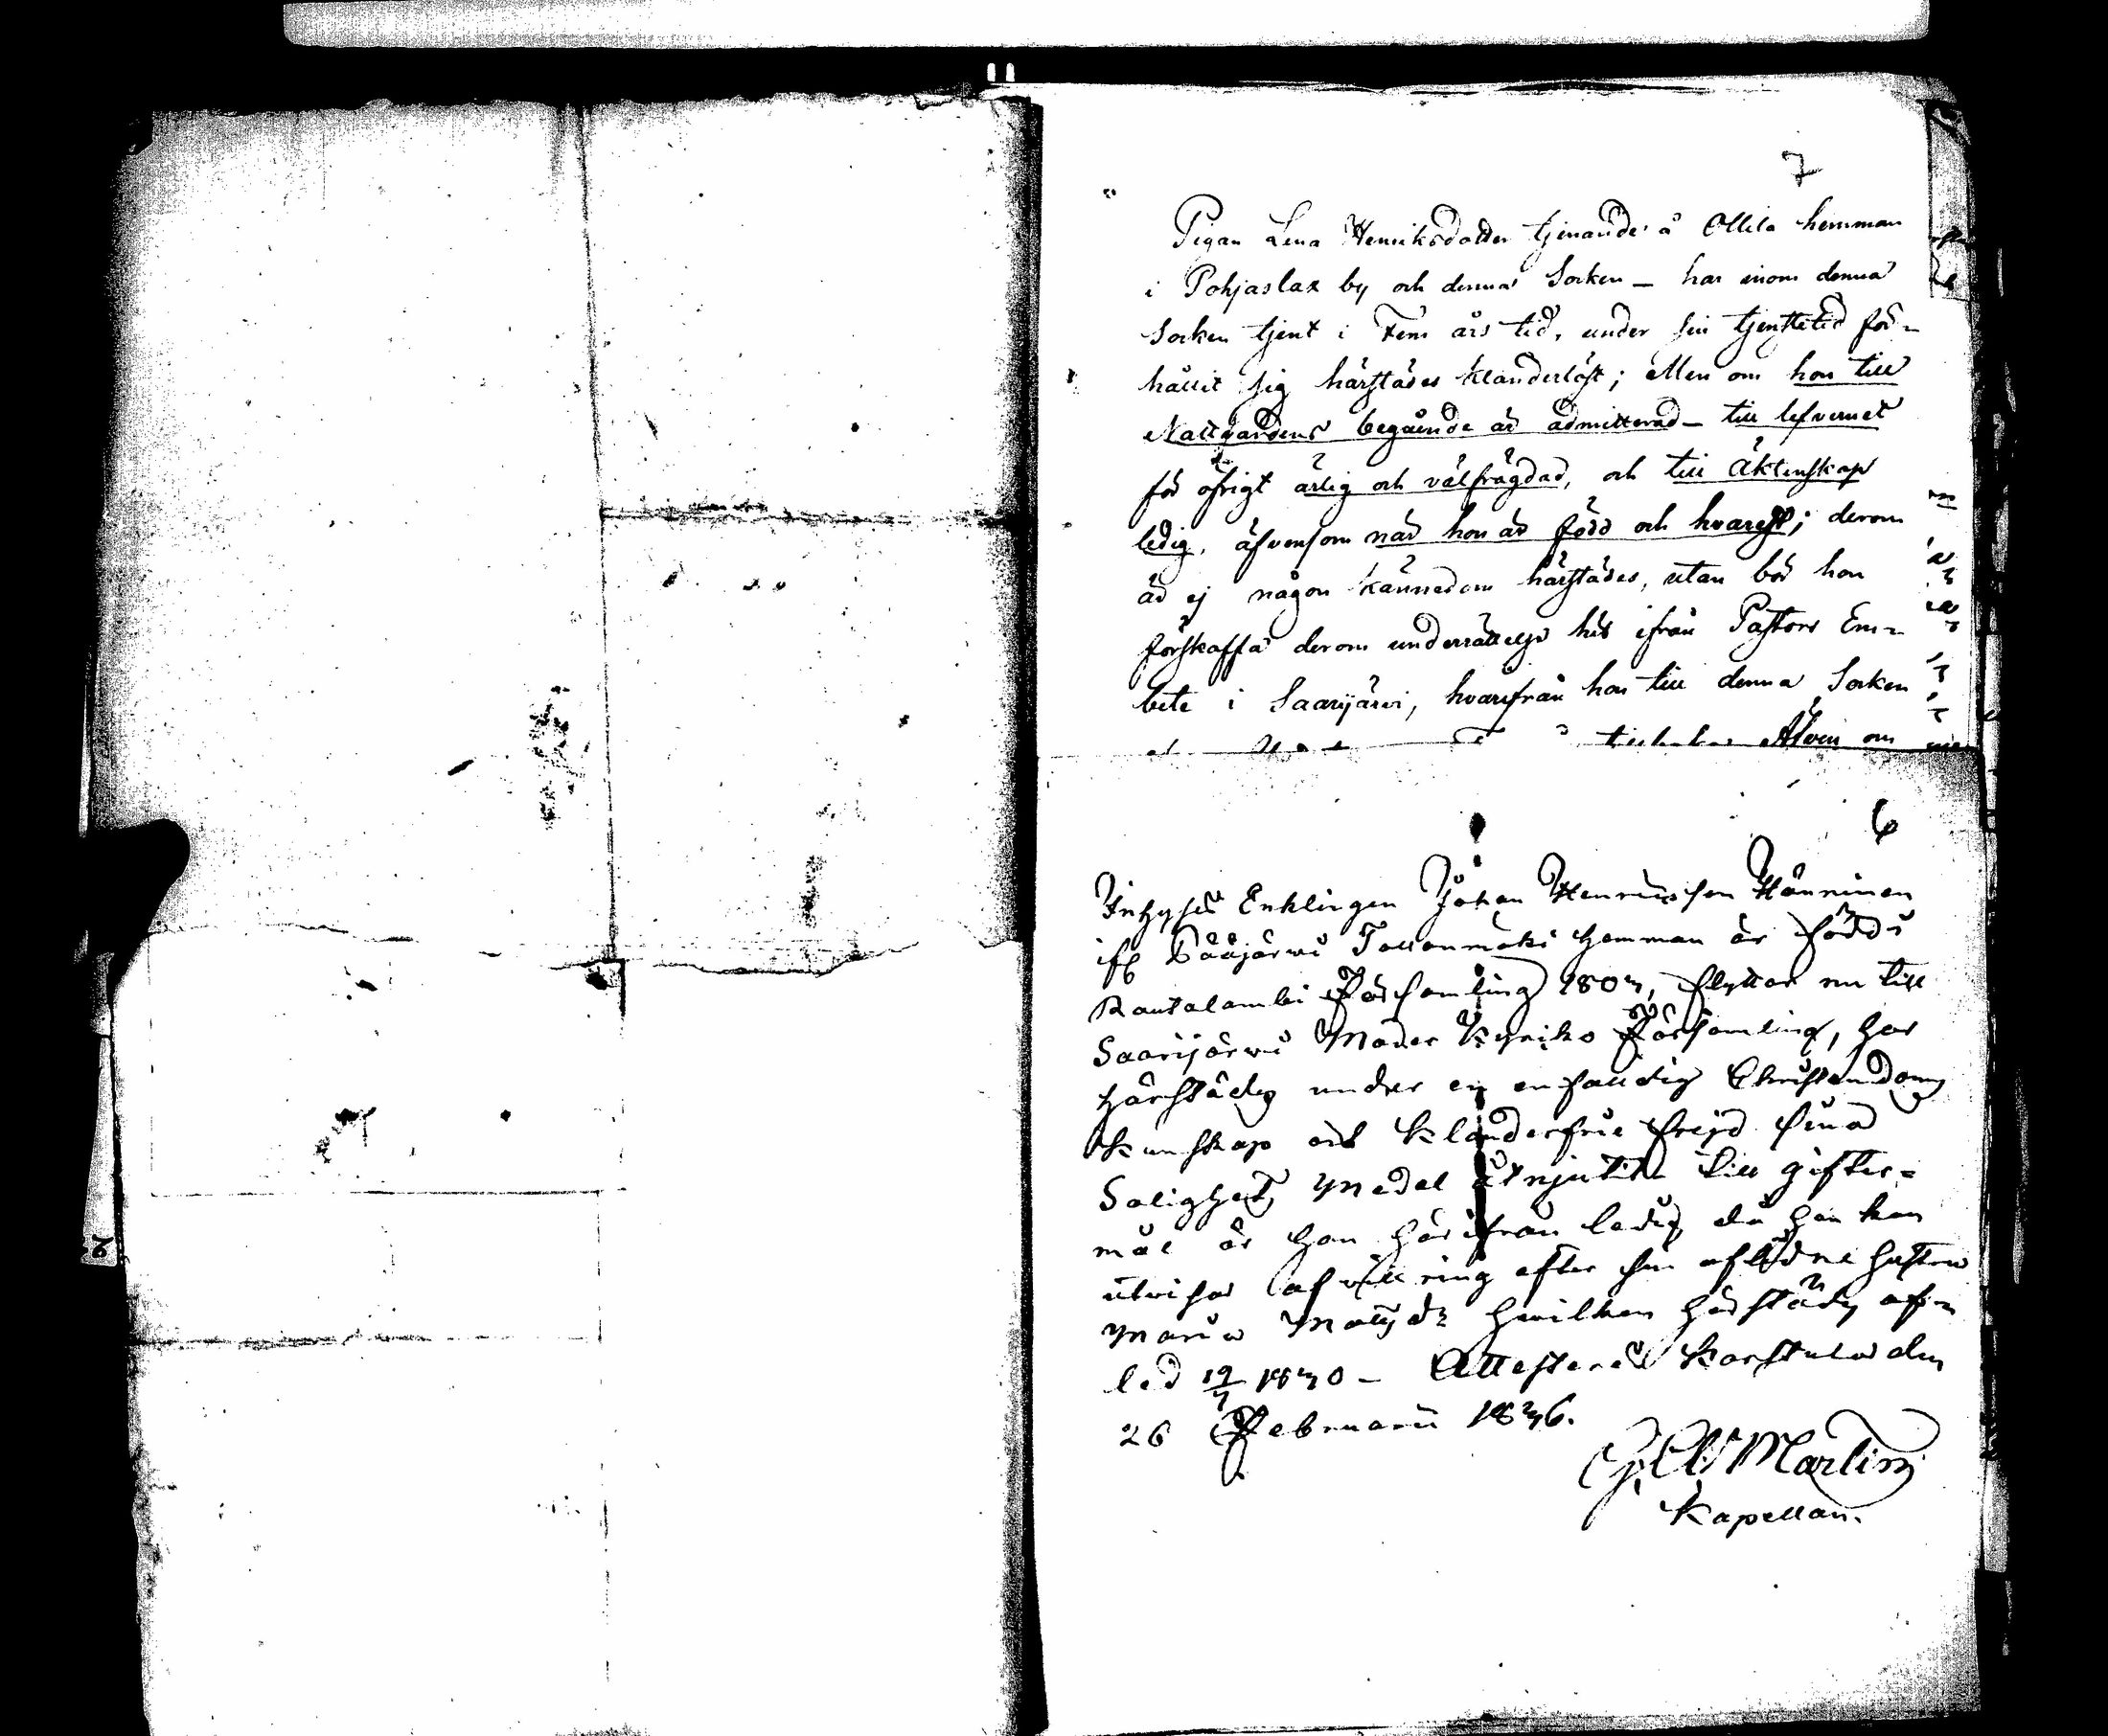 7
Pigan Lena Henriksdotter tjenande å Ollila hemman
i Pohjaslax by och denna Socken – har inom denna
Socken tjent i Fem års tid, under sin tjenstetid för-
hållit sig härstädes klanderlöst; Men om hon till
Nattvardens begående är admitterad – till lefvernet
för öfrigt ärlig och välfrägdad, och till Äktenskap
ledig, äfvensom när hon är född och hvarest; derom
är ej någon kännedom härstädes, utan bör hon
förskaffa derom underrättelse hit ifrån Pastors Em-
bete i Saarijärvi, hvarifrån hon till denna Socken
Äfven om
6
Inhyses Enklingen Johan Henricsson Hänninen
ifr Pääjärvi hemman är född i
Rautalambi Församling 1807, flyttar nu till
Saarijärvi Moder Kyrko Församling, har
härstädes under en enfaldig Christendoms
kunskap och klanderfrie frejd sina
Salighets medel åtnjutit – till gifter-
mål är han härifrån ledig, då han kan
utvisa afvittring efter sin aflidne hustru
Maria Mattsdr hvilken härstädes af-
led 19/7 1830 – Attesterar Karstula den
26 Februarii 1836.
Martin
Kapellan.
2